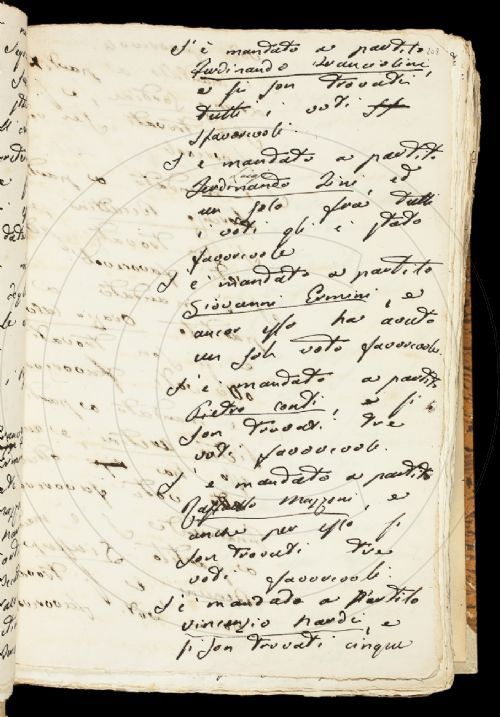 S'è mandato a partito
Ferdinando Franciolini,
e si son trovati
tutti i voti sf
sfavorevoli.
S'è mandato a partito
Luigi
Ferdinando Zini, ed
un solo fra tutti
i voti gli è stato
favorevole
S'è mandato a partito
Giovanni Ermini, e
ancor esso ha avuto
un sol voto favorevole.
S'è mandato a partito
Pietro Conti, e si
son trovati tre
voti favorevoli.
S'è mandato a partito
Raffaello Mazzoni, e
anche per esso si
son trovati tre
voti favorevoli.
S'è mandato a partito
Vincenzio Nardi, e
si son trovati cinque